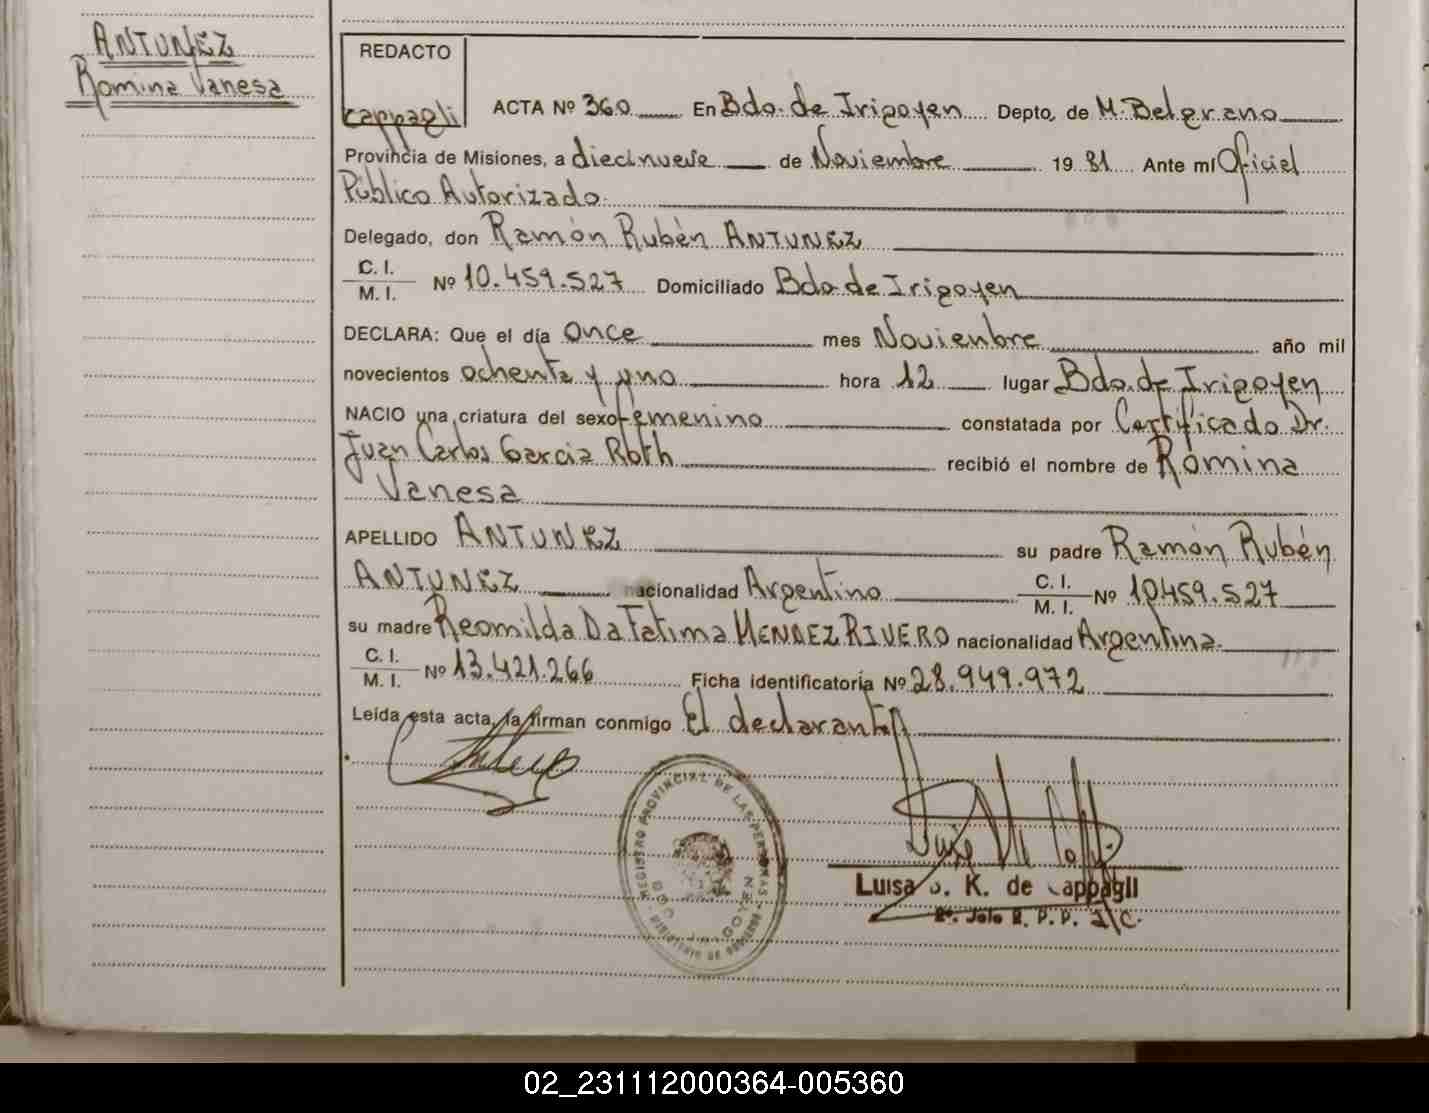 ANTUNEZ
Romina Vanesa
REDACTO
cappagli
ACTA Nº 360 En Bdo. de Irigoyen Depto, de M. Belgrano
Provincia de Misiones, a diecinueve de Noviembre 19 81 Ante mí Oficial
Público Autorizado.
Delegado, don Ramón Rubén ANTUNEZ
C. I.
M. I. Nº 10.459.527 Domiciliado Bdo de Irigoyen
DECLARA: Que el día once mes Noviembre año mil
novecientos ochenta y uno hora 12 lugar Bdo. de Irigoyen
NACIO una criatura del sexo femenino constatada por Certificado Dr.
Juan Carlos Garcia Roth recibió el nombre de Romina
Vanesa
APELLIDO ANTUNEZ su padre Ramón Rubén
ANTUNEZ nacionalidad Argentino C. I.
M. I. Nº 10459.527
su madre Reomilda Da Fatima MENDEZ RIVERO nacionalidad Argentina.
C. I.
M. I. Nº 13.421.266 Ficha identificatoria Nº 28.949.972
Leída esta acta, la firman conmigo El declarante
REGISTRO PROVINCIAL DE LAS PERSONAS
BDO. IRIGOYEN
LUISA K. de Cappagli
02_231112000364-005360